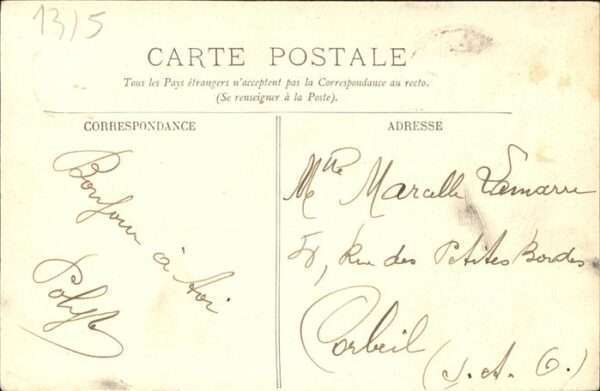 13/5
CARTE POSTALE
Tous les Pays étrangers n'acceptent pas la Correspondance au recto.
(Se renseigner à la Poste).
CORRESPONDANCE
ADRESSE
Bonjour à toi
Mlle Marcelle Lemarre
rue des Petites Bordes
Corbeil
(S. et O.)